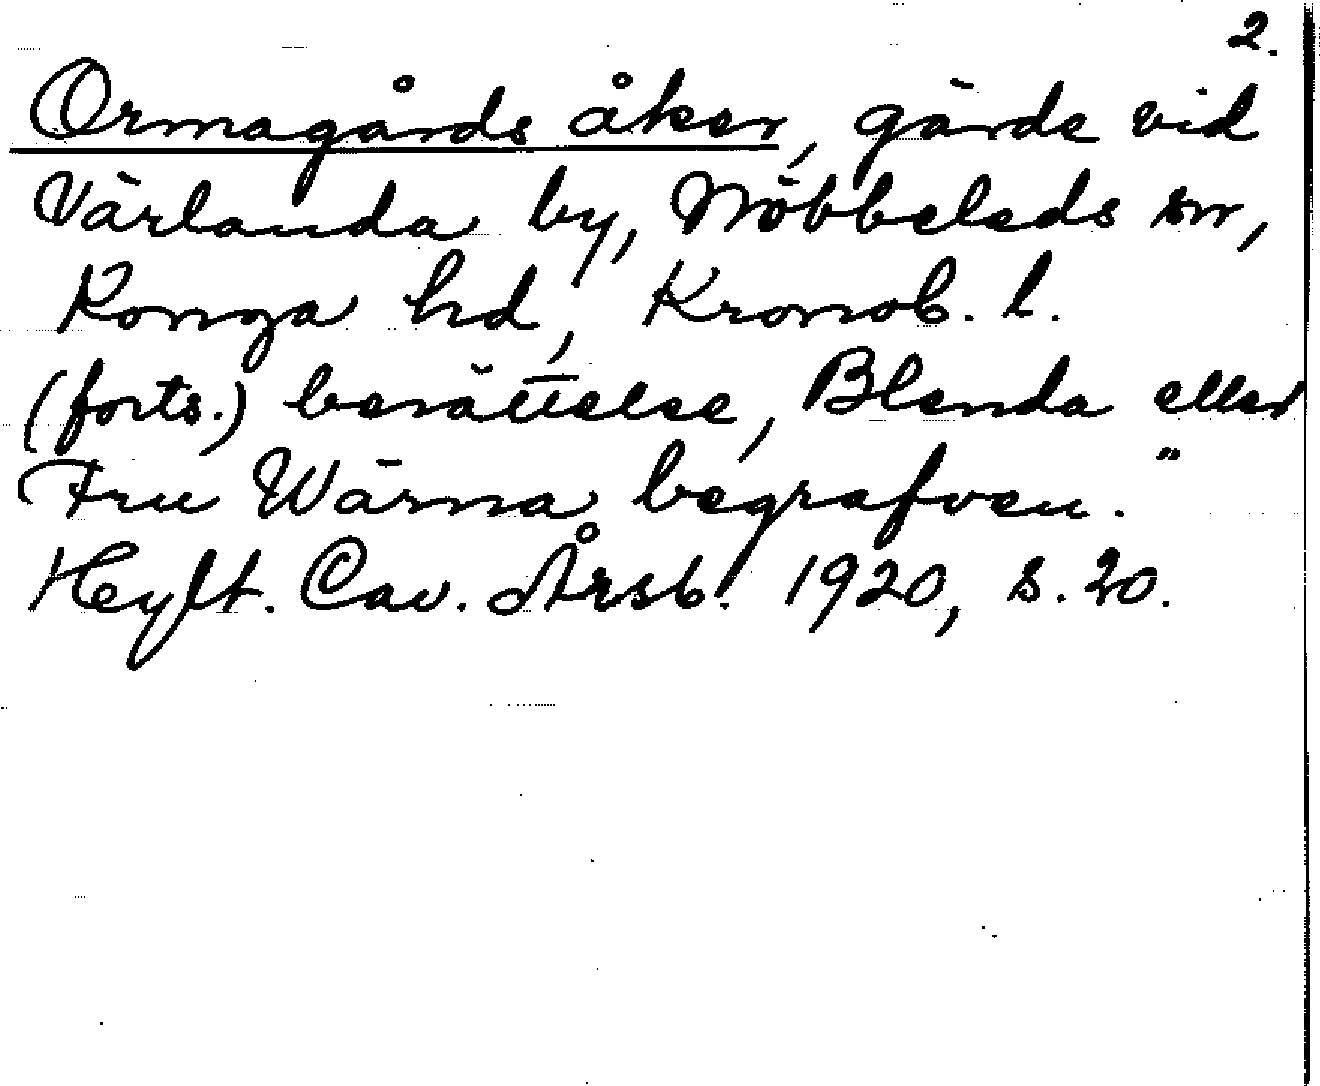 2.
Ormagårds åker, gärde vid
Värlanda by, Nöbbeleds sn,
Konga hd, Kronob. l.
(forts.) berättelse, Blenda eller
Fru Wärna begrafven."
Heylt. Cav. Årsb. 1920, s. 20.